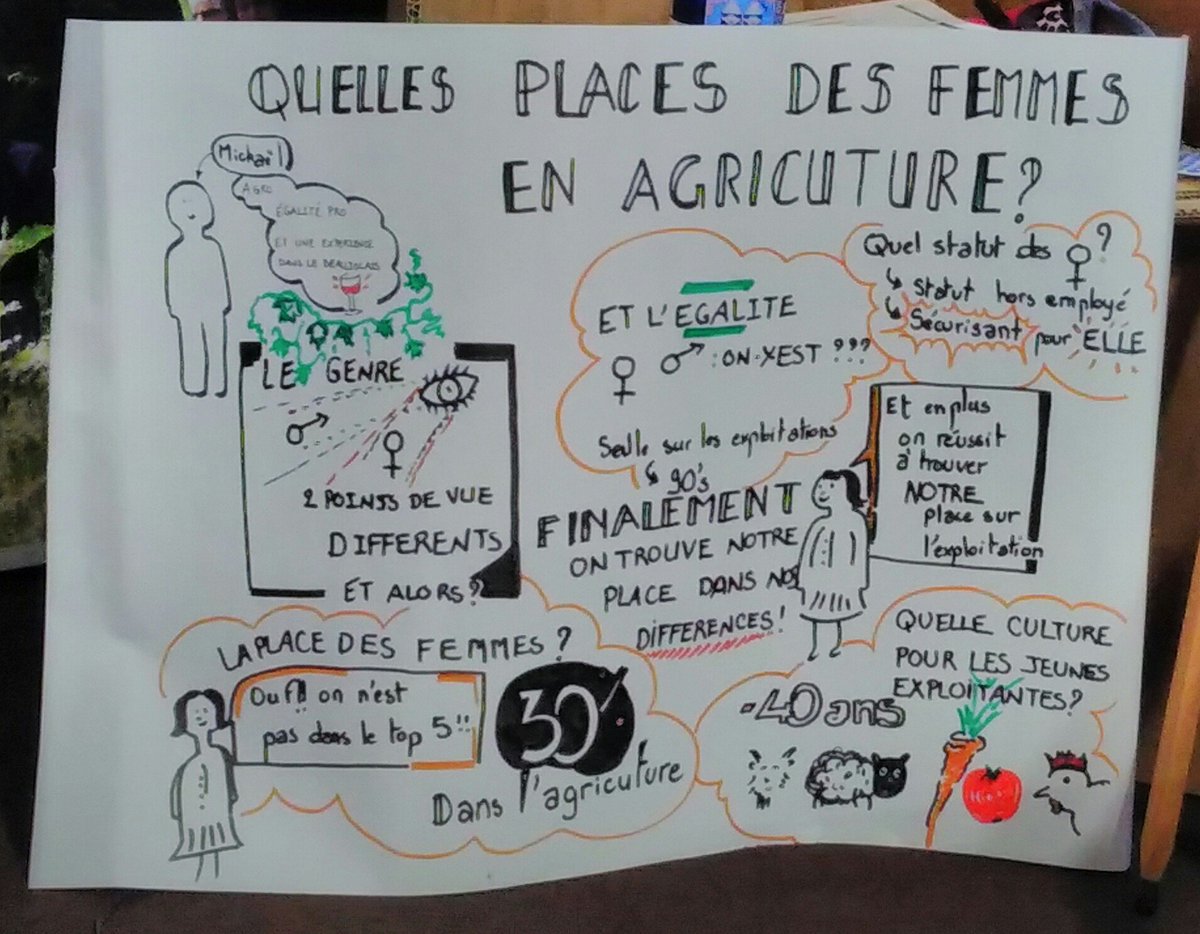 QUELLES PLACES DES FEMMES
EN AGRICUTURE?
Mickaël
AGRO
ÉGALITÉ PRO
ET UNE EXPERIENCE
DANS LE BEAUJOLAIS
LE GENRE
2 POINTS DE VUE
DIFFERENTS
ET ALORS?
ET L'EGALITE
♀ ♂ : ON-YEST ???
Seule sur les exploitations
↳ 90's
Quel statut des ♀ ?
↳ statut hors employé
↳ Sécurisant pour ELLE
FINALEMENT
ON TROUVE NOTRE
PLACE DANS NOS
DIFFERENCES!
Et en plus
on réussit
à trouver
NOTRE
place sur
l'exploitation
LA PLACE DES FEMMES?
Ouf!! on n'est
pas dans le top 5!!
30%
Dans l'agricuture
QUELLE CULTURE
POUR LES JEUNES
EXPLOITANTES?
-40 ans